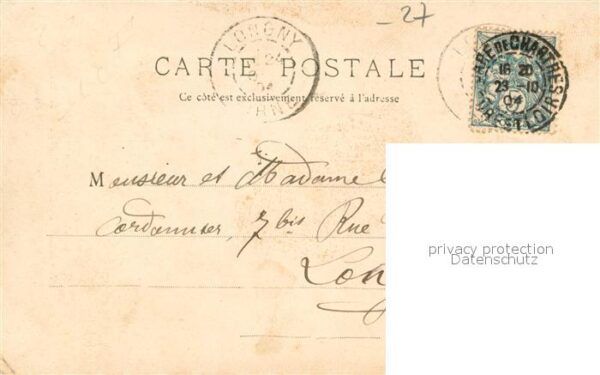 -27
LONGNY
24
ORNE
CARTE POSTALE
Ce côté est exclusivement réservé à l'adresse
GARE DE CHARTRES
16 20
23 -10
04
EURE ET LOIR
Monsieur et Madame
Cordonnier, 7 bis Rue
Lon
privacy protection
Datenschutz